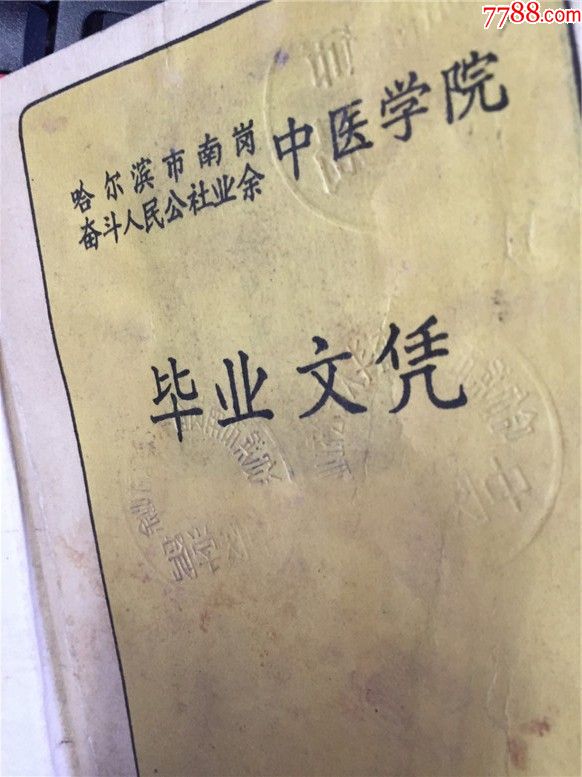 7788.com
哈尔滨市南岗
奋斗人民公社业余
中医学院
毕业文凭